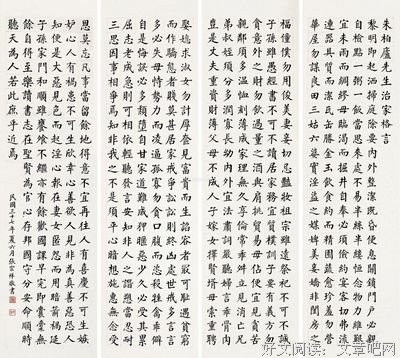 朱柏廬先生治家格言
黎明即起洒掃庭除要内外整潔既昏便息關鎖門戶必親
自檢點一粥一飯當思來處不易半絲半縷恒念物力維艱
宜未雨而綢繆毋臨渴而掘井自奉必須儉約宴客切勿流
連器具質而潔瓦缶勝金玉飲食約而精園蔬愈珍饈勿營
華屋勿謀良田三姑六婆實淫盜之媒婢美妾嬌非閨房之
福僮僕勿用俊美妻妾切忌豔妝祖宗雖遠祭祀不可不誠
子孫雖愚經書不可不讀居家務宜質樸訓子要有義方勿
貪意外之財勿飲過量之酒與肩挑貿易毋佔便宜見貧苦
親鄰須多溫恤刻薄成家理無久享倫常乖舛立見消亡兄
弟叔姪須分多潤寡長幼內外宜法肅詞嚴聽婦言乖骨肉
豈是丈夫重資財薄父母不成人子嫁女擇佳婿毋索重聘
娶媳求淑女勿計厚奩見富貴而生諂容者最可恥遇貧窮
而作驕態者賤莫甚居家戒爭訟訟則終凶處世戒多言言
多必失毋恃勢力而凌逼孤寡勿貪口腹而恣殺牲禽乖僻
自是悔誤必多頹惰自甘家道難成狎暱惡少久必受其累
屈志老成急則可相依輕聽發言安知非人之譖愬當忍耐
三思因事相爭焉知非我之不是須平心暗想施惠無念受
恩莫忘凡事當留餘地得意不宜再往人有喜慶不可生嫉
妒心人有禍患不可生欣幸心善欲人見非為真善惡恐人
知便是大惡見色而起淫心報在妻女匿怨而用暗箭禍延
子孫家門和順雖饔飧不繼亦有餘歡國課早完即囊橐無
餘自得至樂讀書志在聖賢為官心存君國守分安命順時
聽天為人若此庶乎近焉
民國三十六年夏六月張宗祥敬書
好文阅读：文章吧网